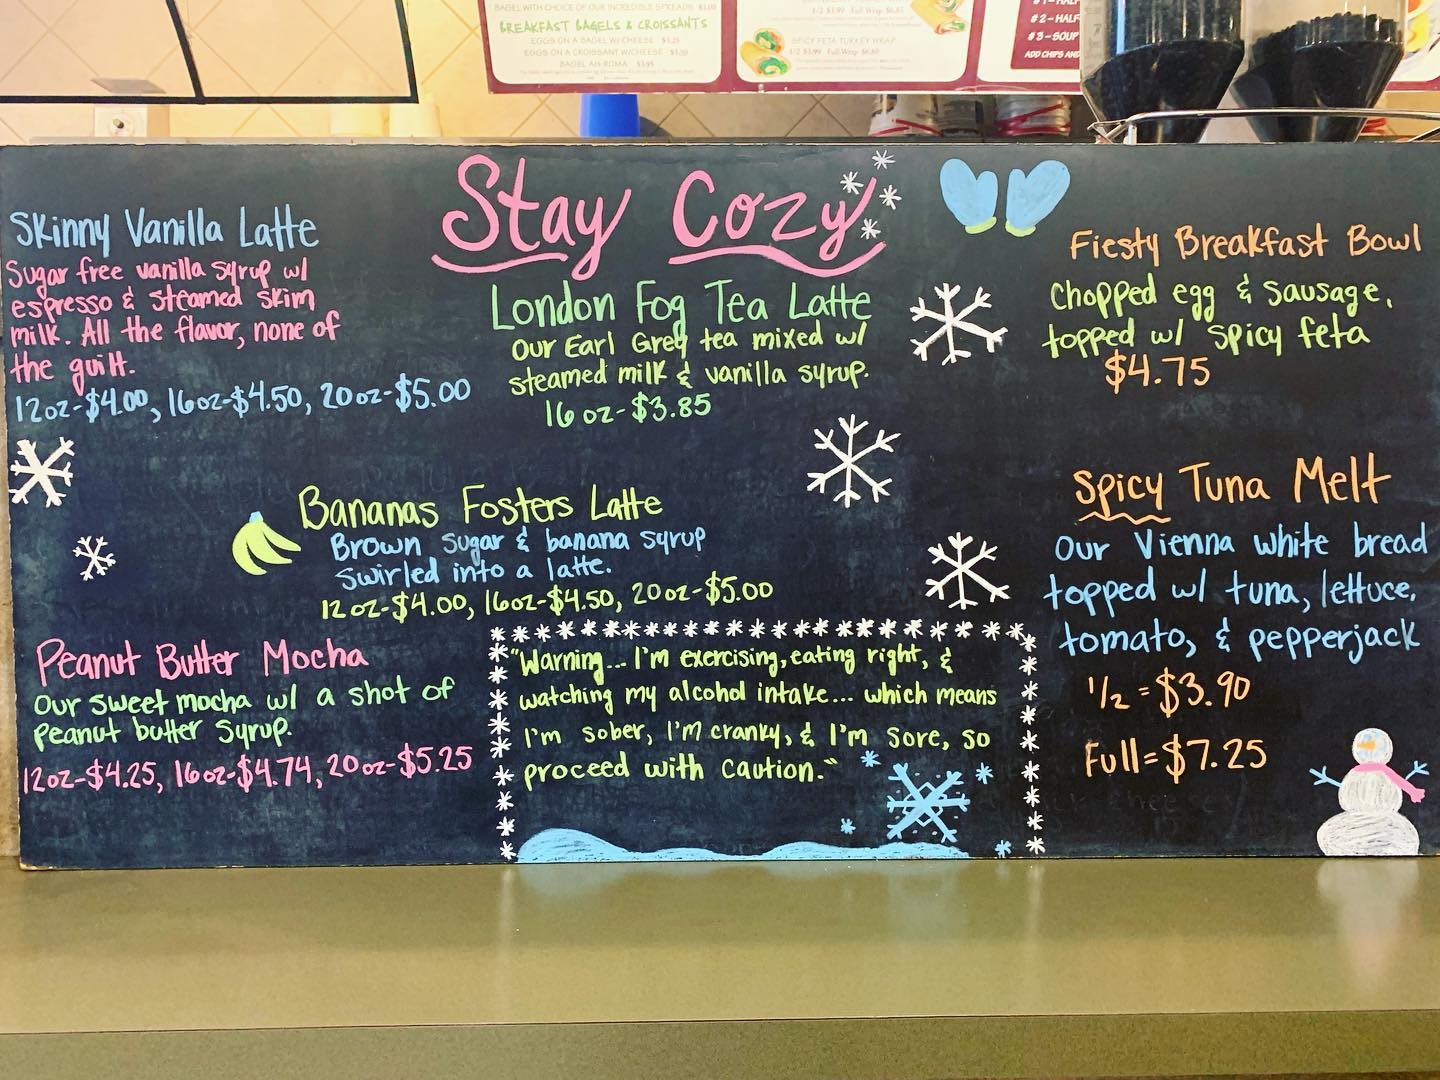 BAGEL WITH CHOICE OF OUR INCREDIBLE SPREADS
BREAKFAST BAGELS & CROISSANTS
EGGS ON A BAGEL W/CHEESE $3.25
EGGS ON A CROISSANT W/CHEESE
BAGEL AH-ROMA $3.95
1/2 $3.99 Full Wrap
SPICY FETA TURKEY WRAP
1/2 $3.99 Full Wrap
# 1 – HALF
# 2 – HALF
# 3 – SOUP
ADD CHIPS AND
Stay Cozy
Skinny Vanilla Latte
Sugar free vanilla syrup w/
espresso & steamed skim
milk. All the flavor, none of
the guilt.
12oz-$4.00, 16oz-$4.50, 20oz-$5.00
London Fog Tea Latte
Our Earl Grey tea mixed w/
steamed milk & vanilla syrup.
16 oz-$3.85
Fiesty Breakfast Bowl
Chopped egg & sausage,
topped w/ spicy feta
$4.75
Bananas Fosters Latte
Brown sugar & banana syrup
swirled into a latte.
12oz-$4.00, 16oz-$4.50, 20oz-$5.00
Spicy Tuna Melt
Our Vienna white bread
topped w/ tuna, lettuce,
tomato, & pepperjack
1/2 = $3.90
Full = $7.25
Peanut Butter Mocha
Our sweet mocha w/ a shot of
peanut butter syrup.
12oz-$4.25, 16oz-$4.74, 20oz-$5.25
"Warning... I'm exercising, eating right, &
watching my alcohol intake... which means
I'm sober, I'm cranky, & I'm sore, so
proceed with caution."